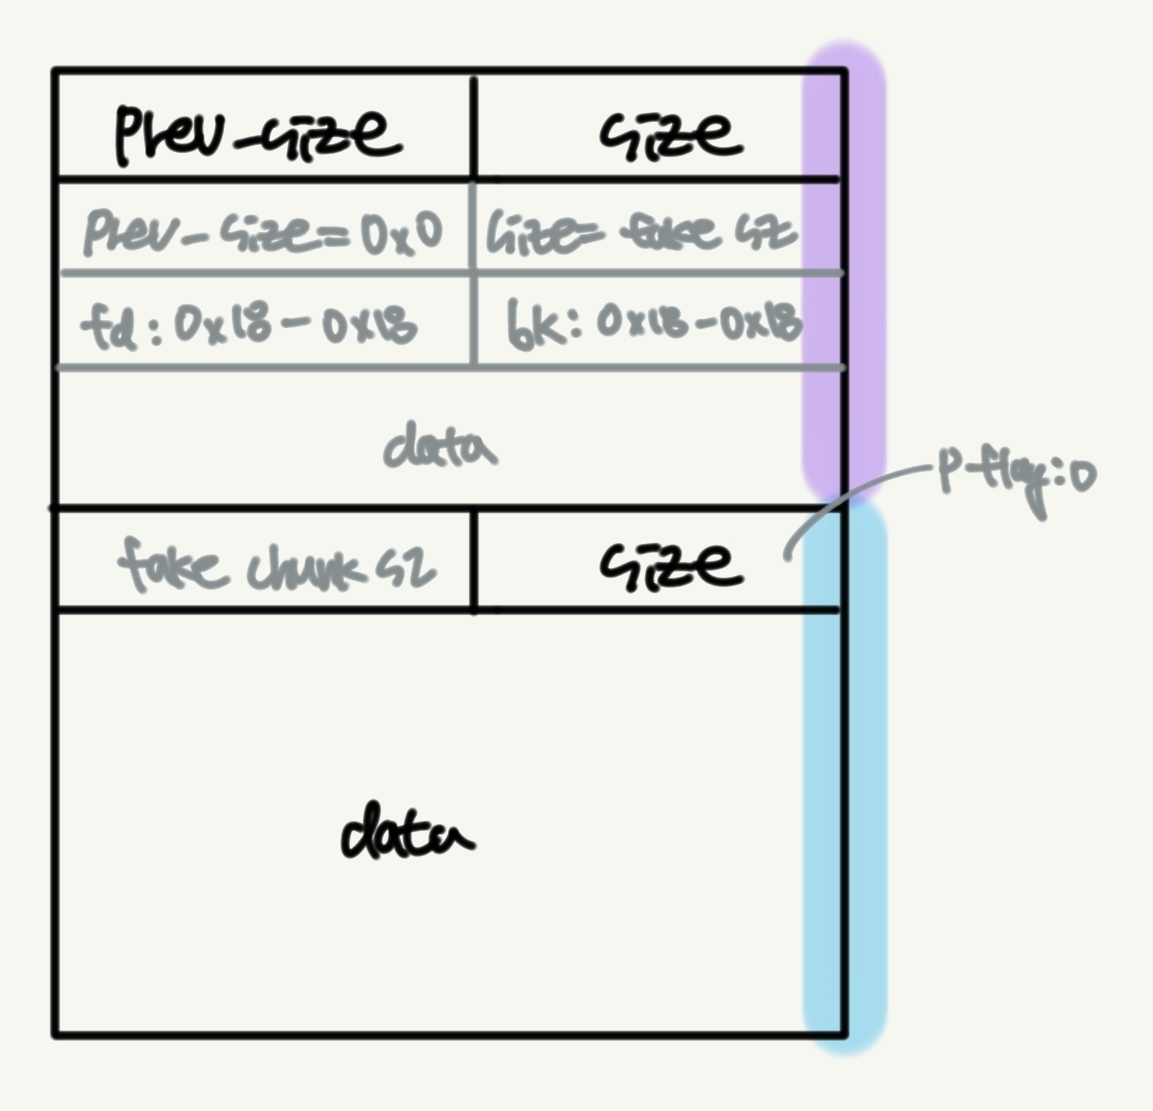 Prev_size size
Prev-size=0x0 size= fake sz
fd: 0x18-0x18 bk: 0x18-0x18
data
P flag:0
fake chunk sz size
data